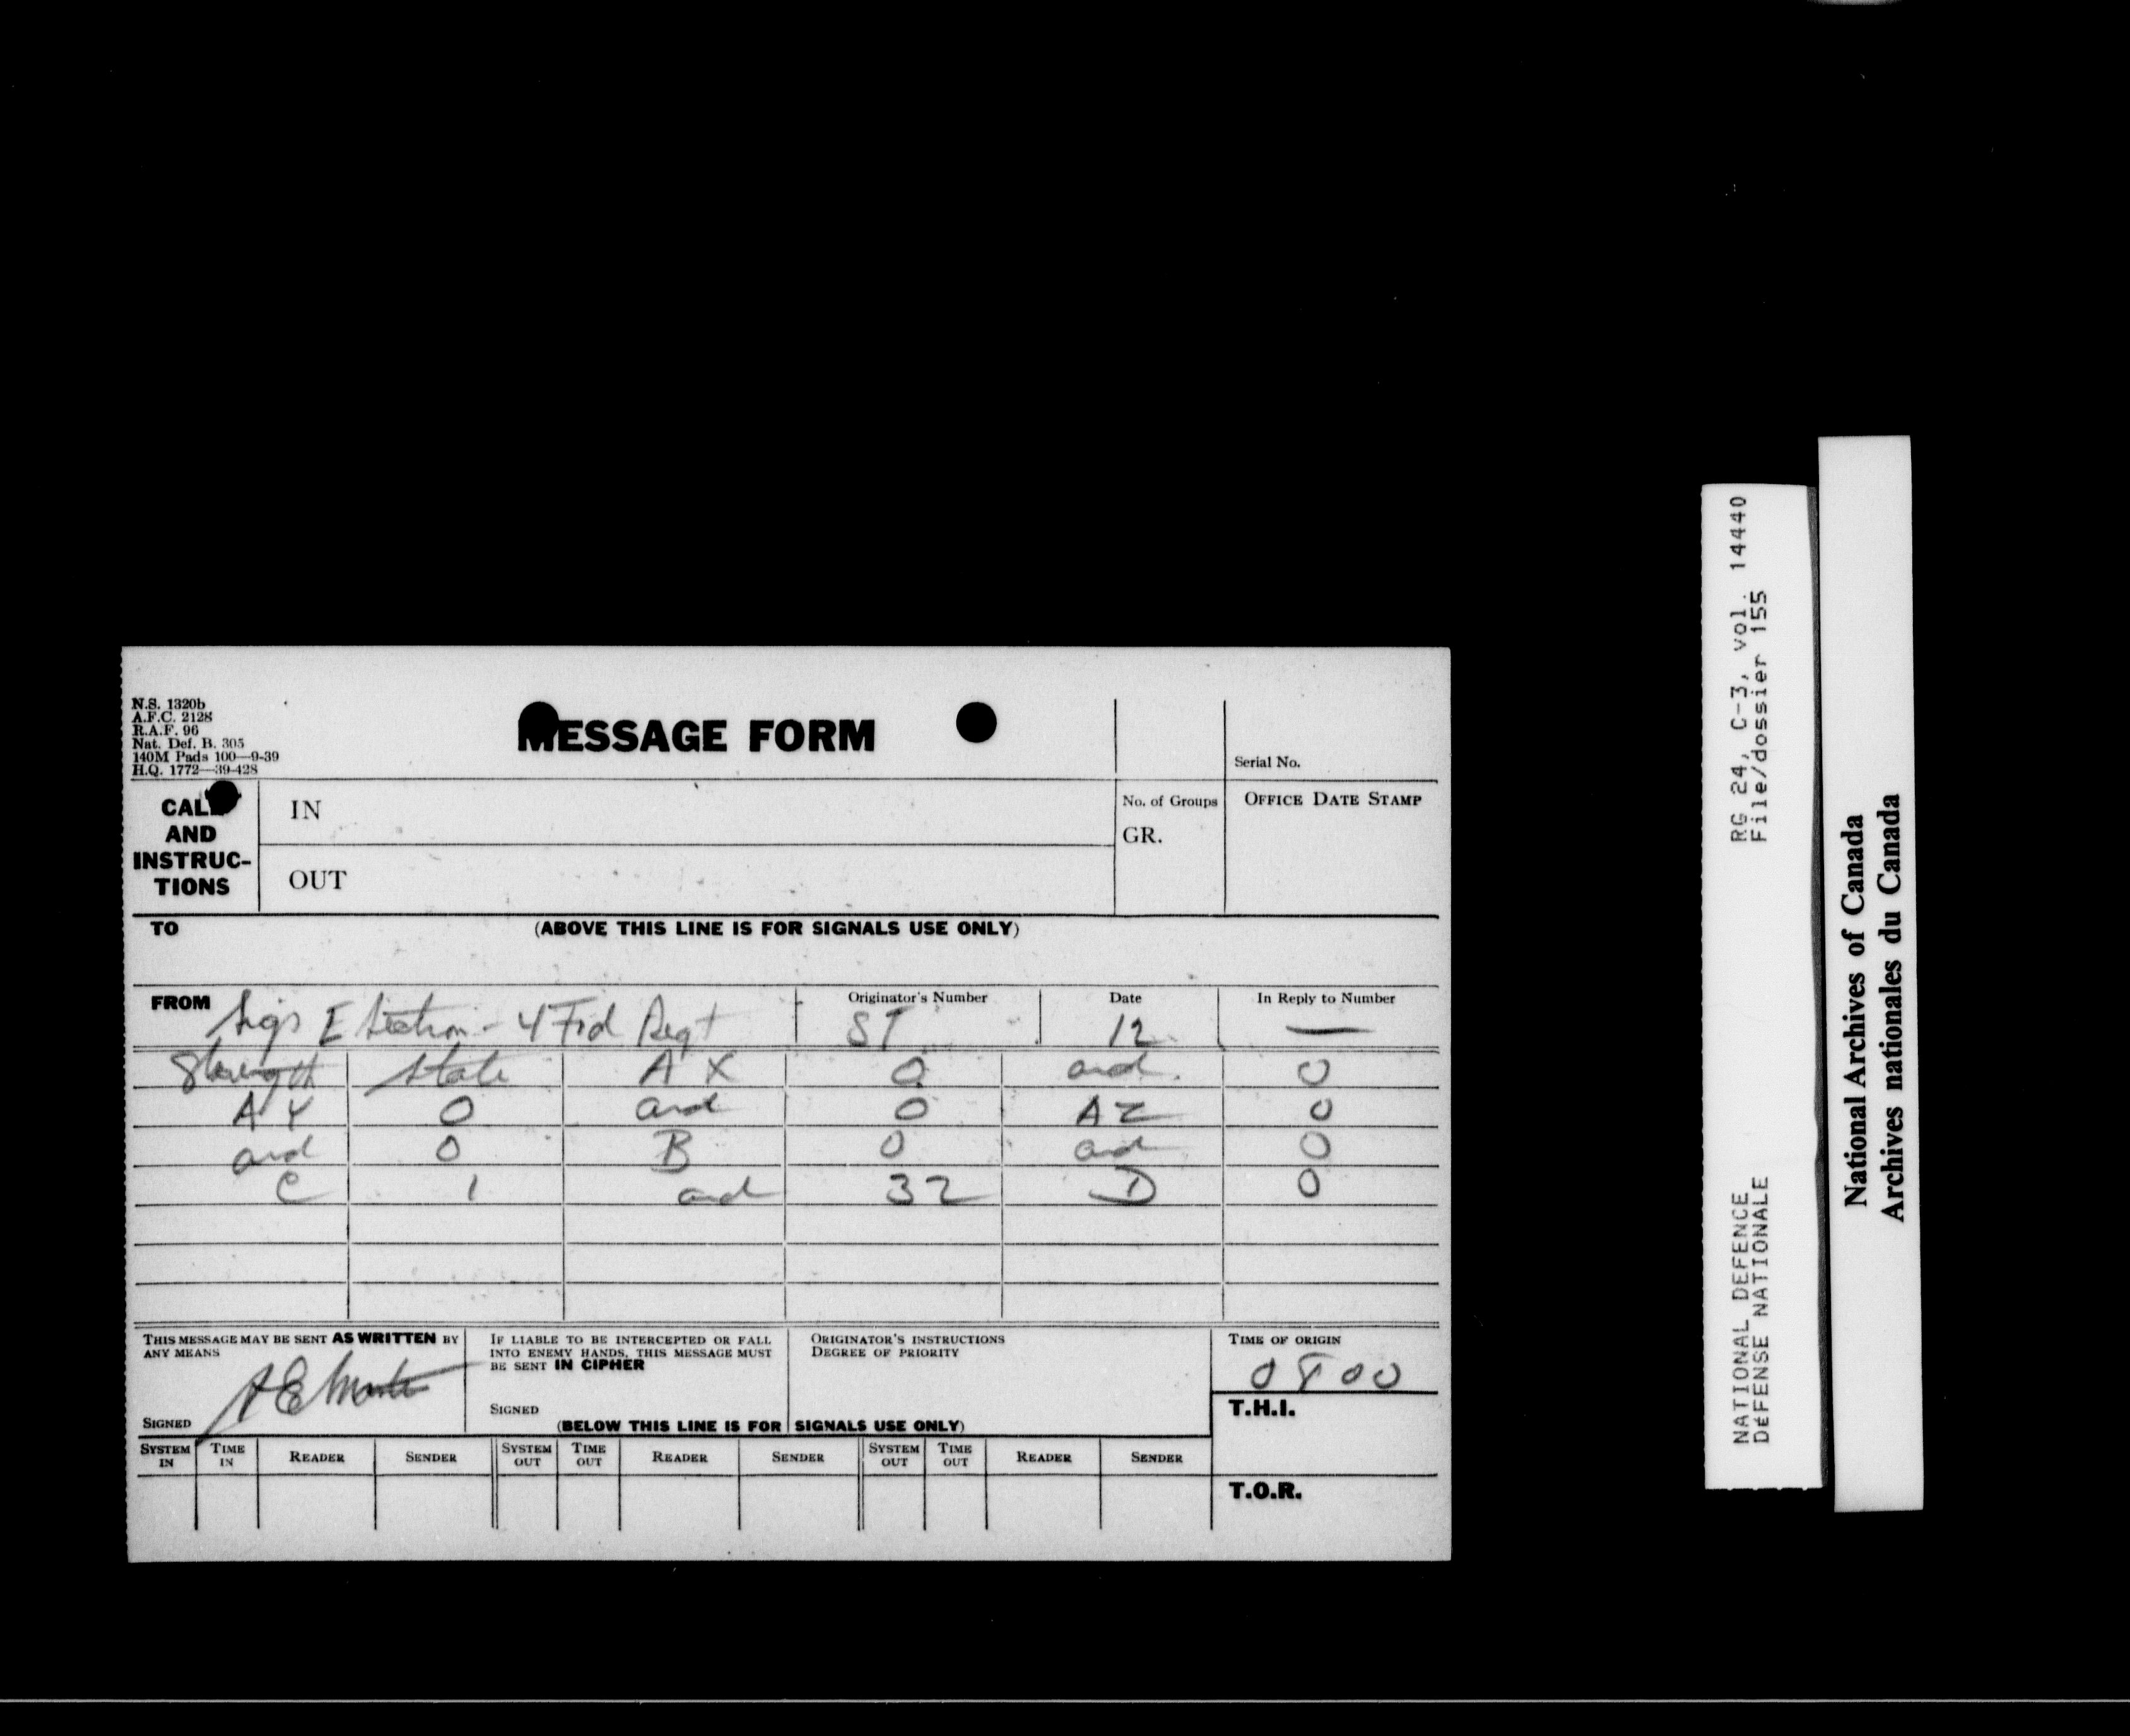 N.S. 1320b
A.F.C. 2128
R.A.F. 96
Nat. Def. B. 305
140M Pads 100—9-39
H.Q. 1772—39-428
MESSAGE FORM
Serial No.
CALL
AND
INSTRUC-
TIONS
IN
OUT
No. of Groups
GR.
OFFICE DATE STAMP
TO
(ABOVE THIS LINE IS FOR SIGNALS USE ONLY)
FROM Sigs E Section - 4 Fd Regt
Originator's Number
ST
Date
12
In Reply to Number
—
Strength State A X 0 and 0
A Y 0 and 0 A Z 0
and 0 B 0 and 0
C 1 and 32 D 0
THIS MESSAGE MAY BE SENT AS WRITTEN BY
ANY MEANS
SIGNED
IF LIABLE TO BE INTERCEPTED OR FALL
INTO ENEMY HANDS, THIS MESSAGE MUST
BE SENT IN CIPHER
SIGNED
ORIGINATOR'S INSTRUCTIONS
DEGREE OF PRIORITY
TIME OF ORIGIN
0800
T.H.I.
(BELOW THIS LINE IS FOR SIGNALS USE ONLY)
SYSTEM IN TIME IN READER SENDER SYSTEM OUT TIME OUT READER SENDER SYSTEM OUT TIME OUT READER SENDER
T.O.R.
RG 24, C-3, vol. 14440
File/dossier 155
NATIONAL DEFENCE
DéFENSE NATIONALE
National Archives of Canada
Archives nationales du Canada